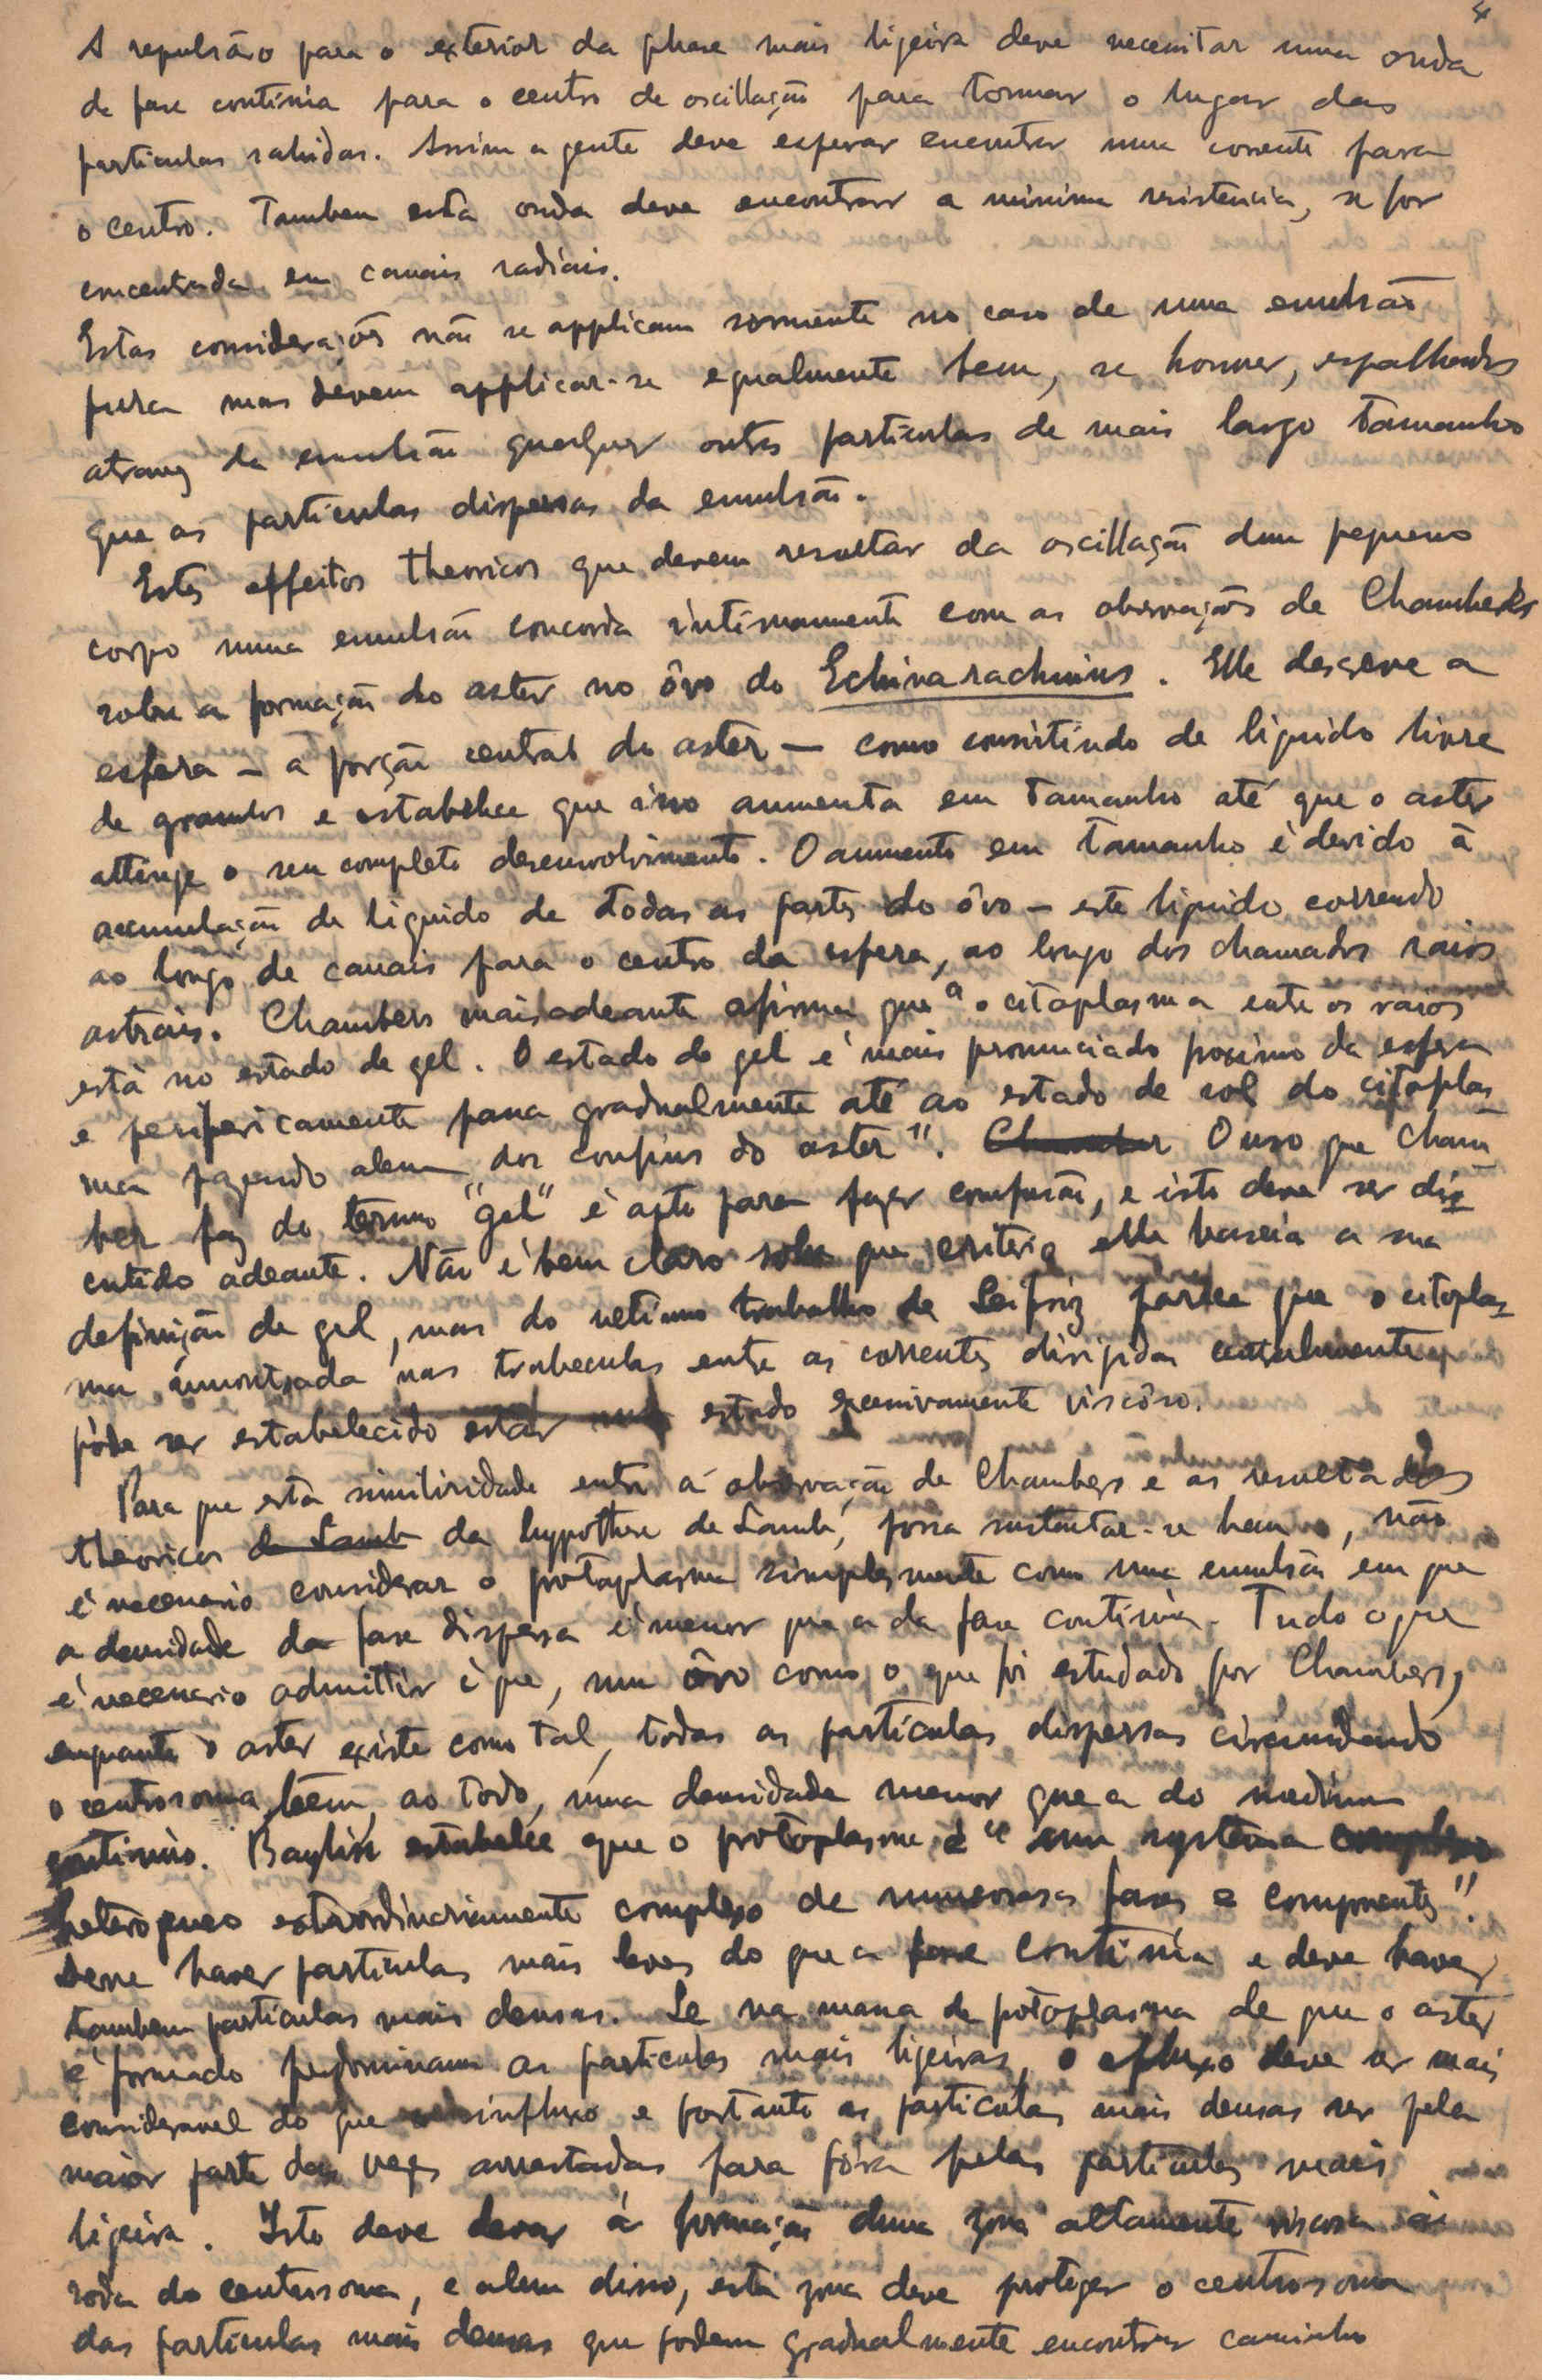 4
A repulsão para o exterior da phase mais ligeira deve necessitar numa onda
da fase continua para o centro de oscillação para tormar o lugar das
particulas sahidas. Assim a gente deve esperar encontrar uma corrente para
o centro. Tambem esta onda deve encontrar a minima resistencia, se for
concentrada em canais radiais.
Estas considerações não se applicam sormente no caso de uma emulsão
pura mas devem applicar-se egualmente bem, se houver, espalhados
atravez da emulsão quaesquer outras particulas de mais largo tamanho
que as particulas dispersas da emulsão.
Estes effeitos theoricos que devem resultar da oscillação dum pequeno
corpo numa emulsão concorda intimamente com as observações de Chambers
sobre a formação do aster no ôvo do Echinarachnius. Elle descreve a
esfera – a porção central do aster – como consistindo de liquido livre
de granulos e estabelece que isso aumenta em tamanho até que o aster
attinge o seu completo desenvolvimento. O aumento em tamanho è devido à
accumulação de liquido de todas as partes do ôvo – este liquido correndo
ao longo de canais para o centro da esfera, ao longo dos chamados raios
astrais. Chambers mais adeante afirma que "o citoplasma entre os raios
està no estado de gel. O estado de gel e' mais pronunciado proximo da esfera
e perifericamente passa gradualmente até ao estado de sol do citoplas-
ma jazendo alem dos confins do aster". Chamber O uso que Cham-
ber faz do termo "gel" è apto para fazer confusão, e isto deve ser dis-
cutido adeante. Não è bem claro sobre que criterio elle baseia a sua
definição de gel, mas do ultimo trabalho de Seifriz parece que o citoplas-
ma amontoada nas trabeculas entre as correntes dirigidas centralmente
póde ser estabelecido estar estado excessivamente viscôso.
Para que esta similiridade entre a observação de Chambers e as resultados
theoricos de Lamb da hypothese de Lamb, possa sustentar-se bem, não
è necessario considerar o protoplasma simplesmente como uma emulsão em que
a densidade da fase dispersa è menor que a da fase continua. Tudo o que
e' necessario admittir è que, num ôvo como o que foi estudado por Chambers,
enquanto o aster existe como tal, todas as particulas dispersas circumdando
o centrosoma, teem, ao todo, uma densidade menor que a do medium
continuo. Bayliss estabelece que o protoplasma è "um systema complexo
heterogeneo extraordinariamente complexo de numerosas fases e componentes".
Deve haver particulas mais leves do que a fase continua e deve haver
tambem particulas mais densas. Se na massa de potoplasma de que o aster
è formado predominam as particulas mais ligeiras, o efluxo deve ser mais
consideravel do que o influxo e portanto as particulas mais densas ser pela
maior parte das vezes arrastadas para fóra pelas particulas mais
ligeira. Isto deve levar á formação duma zona altamente viscosa á
roda do centrosoma, e alem disso, esta zona deve proteger o centrosoma
das particulas mais densas que podem gradualmente encontrar caminho